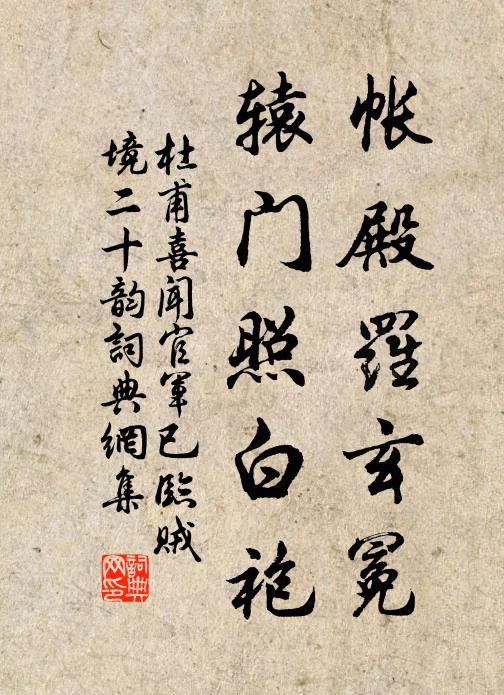 帐殿罗玄冕
辕门照白袍
杜甫喜闻官军已临贼
境二十韵词典網集
詞典網印